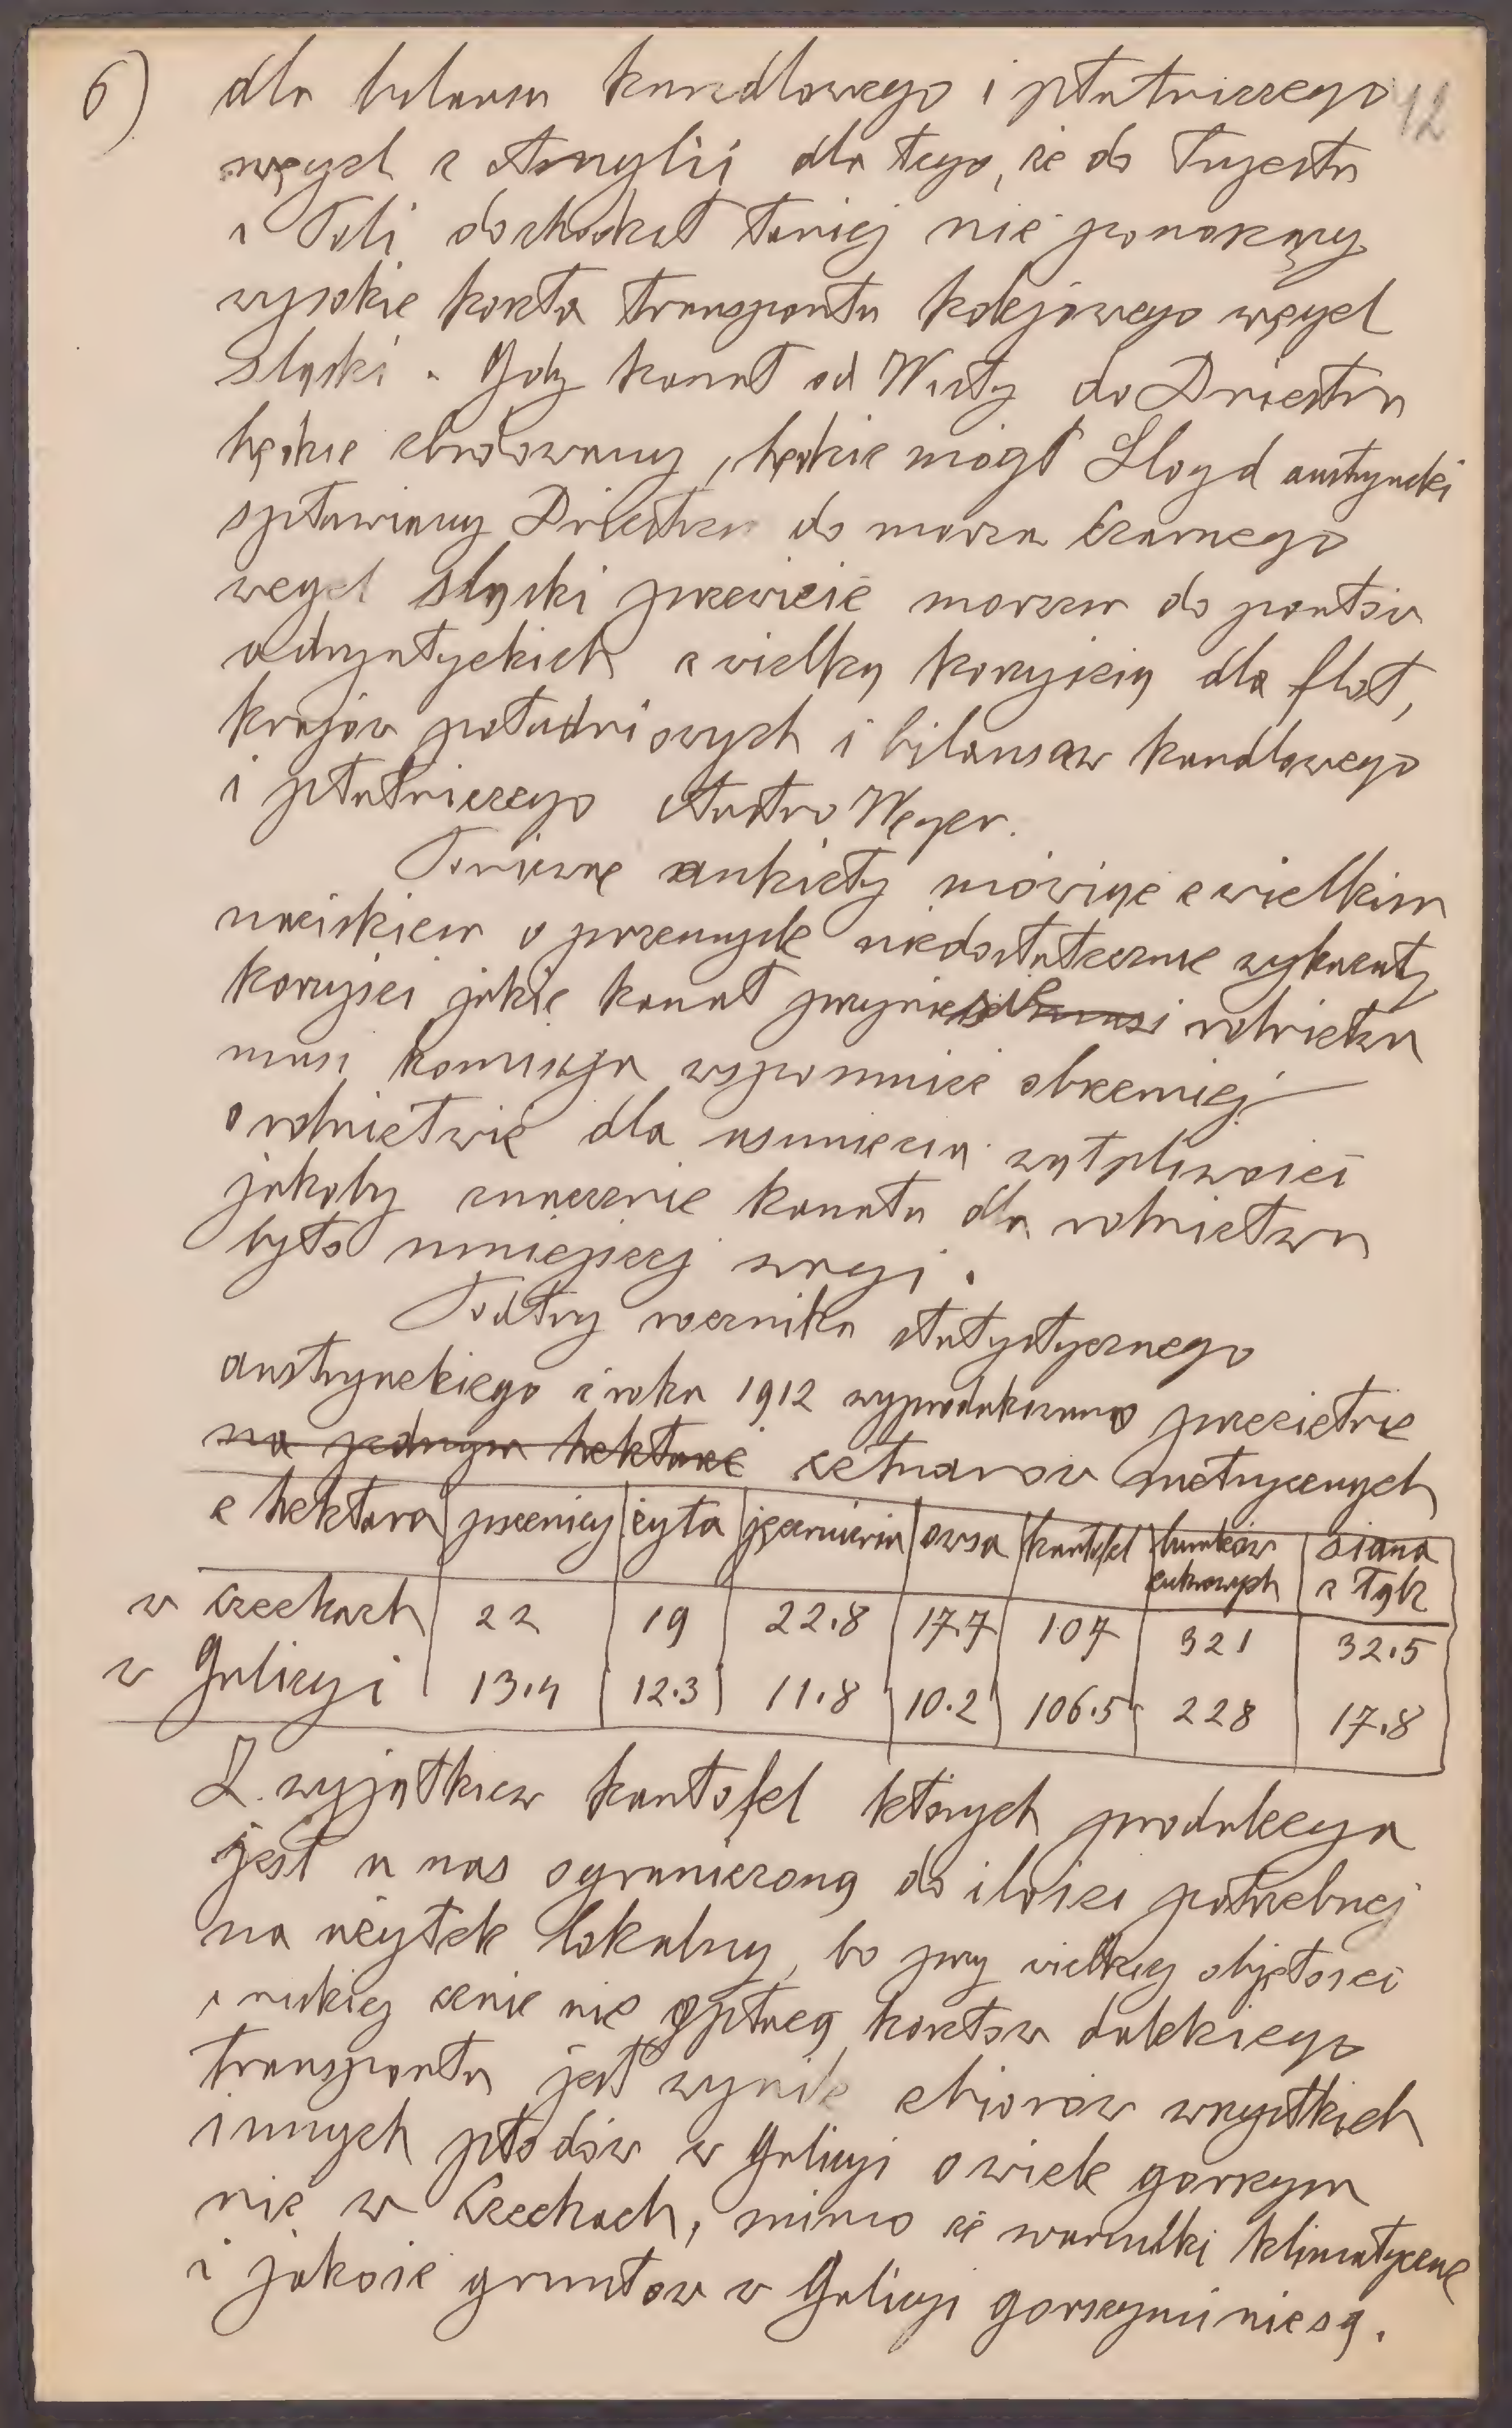 6) dla bilansu handlowego i płatniczego 12
węgiel z Anglii dla tego, że do Tryestu
i Poli dochodził taniej nie ponoszący
wysokie koszta transportu kolejowego węgiel
śląski. Gdy kanał od Wisły do Dniestru
będzie zbudowany, będzie mógł Lloyd austryacki
spławiany Dniestrem do morza Czarnego
węgel śląski przewieść morzem do portów
adryatyckich z wielką korzyścią dla flot,
krajów południowych i bilansów handlowego
i płatniczego Austro Węgier.
Ponieważ ankiety mówiąc z wielkim
naciskiem o przemyśle niedostatecznie wykazały
korzyści jakie kanał przyniesie rolnictwu
musi komisya wspomnieć obszerniej
o rolnictwie dla usunięcia wątpliwości
jakoby znaczenie kanału dla rolnictwa
było mniejszej wagi.
Podług rocznika statystycznego
austryackiego z roku 1912 wyprodukowano przeciętnie
na jednym hektarze cetnarów metrycznych
z hektara pszenicy żyta jęczmienia owsa kartofel buraków cukrowych siana z łąk
w Czechach 22 19 22.8 17.7 107 321 32.5
w Galicyi 13.4 12.3 11.8 10.2 106.5 228 17.8
Z wyjątkiem kartofel których produkcya
jest u nas ograniczoną do ilości potrzebnej
na użytek lokalny, bo przy wielkiej objętości
i niskiej cenie nie opłacą kosztów dalekiego
transportu jest wynik zbiorów wszystkich
innych płodów w Galicyi o wiele gorszym
niż w Czechach, mimo że warunki klimatyczne
i jakość gruntów w Galicyi gorszymi nie są.